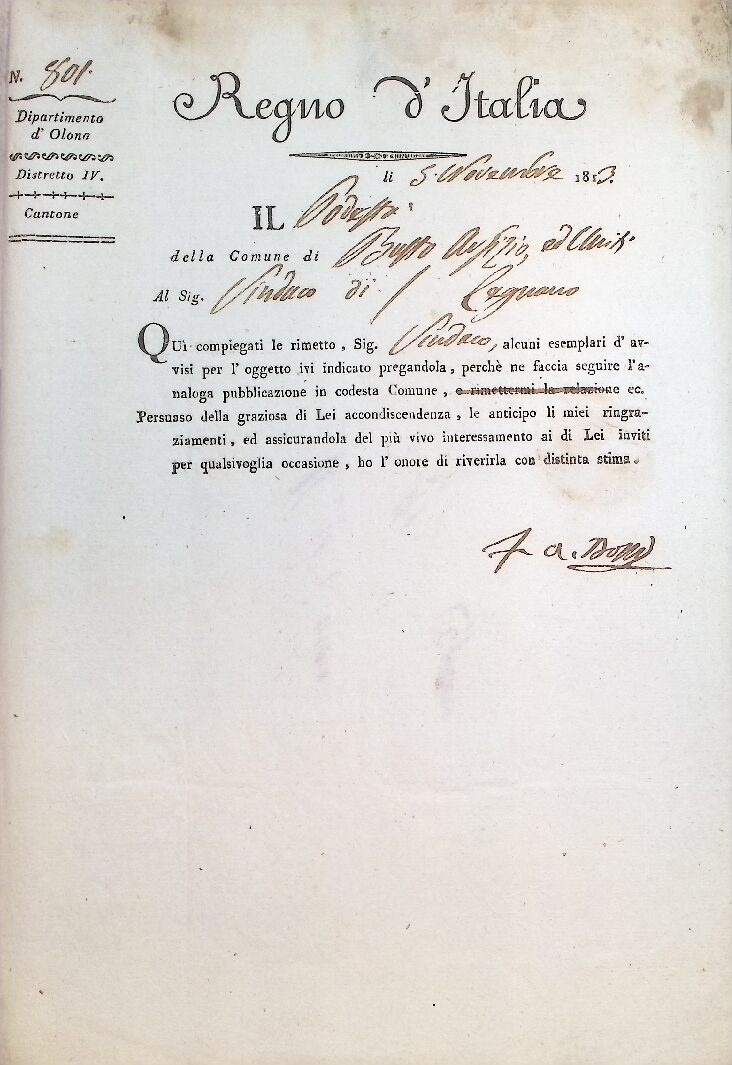 N. 801.
Regno d' Italia
Dipartimento
d' Olona
Distretto IV.
Cantone
li 5. Novembre 181
IL Podestà
della Comune di Busto Arsizio, ed Unit.
Al Sig. Sindaco di
QUì compiegati le rimetto, Sig. Sindaco, alcuni esemplari d' av-
visi per l' oggetto ivi indicato pregandola, perchè ne faccia seguire l'a-
naloga pubblicazione in codesta Comune, e rimettermi la relazione ec.
Persuaso della graziosa di Lei accondiscendenza, le anticipo li miei ringra-
ziamenti, ed assicurandola del più vivo interessamento ai di Lei inviti
per qualsivoglia occasione, ho l' onore di riverirla con distinta stima.